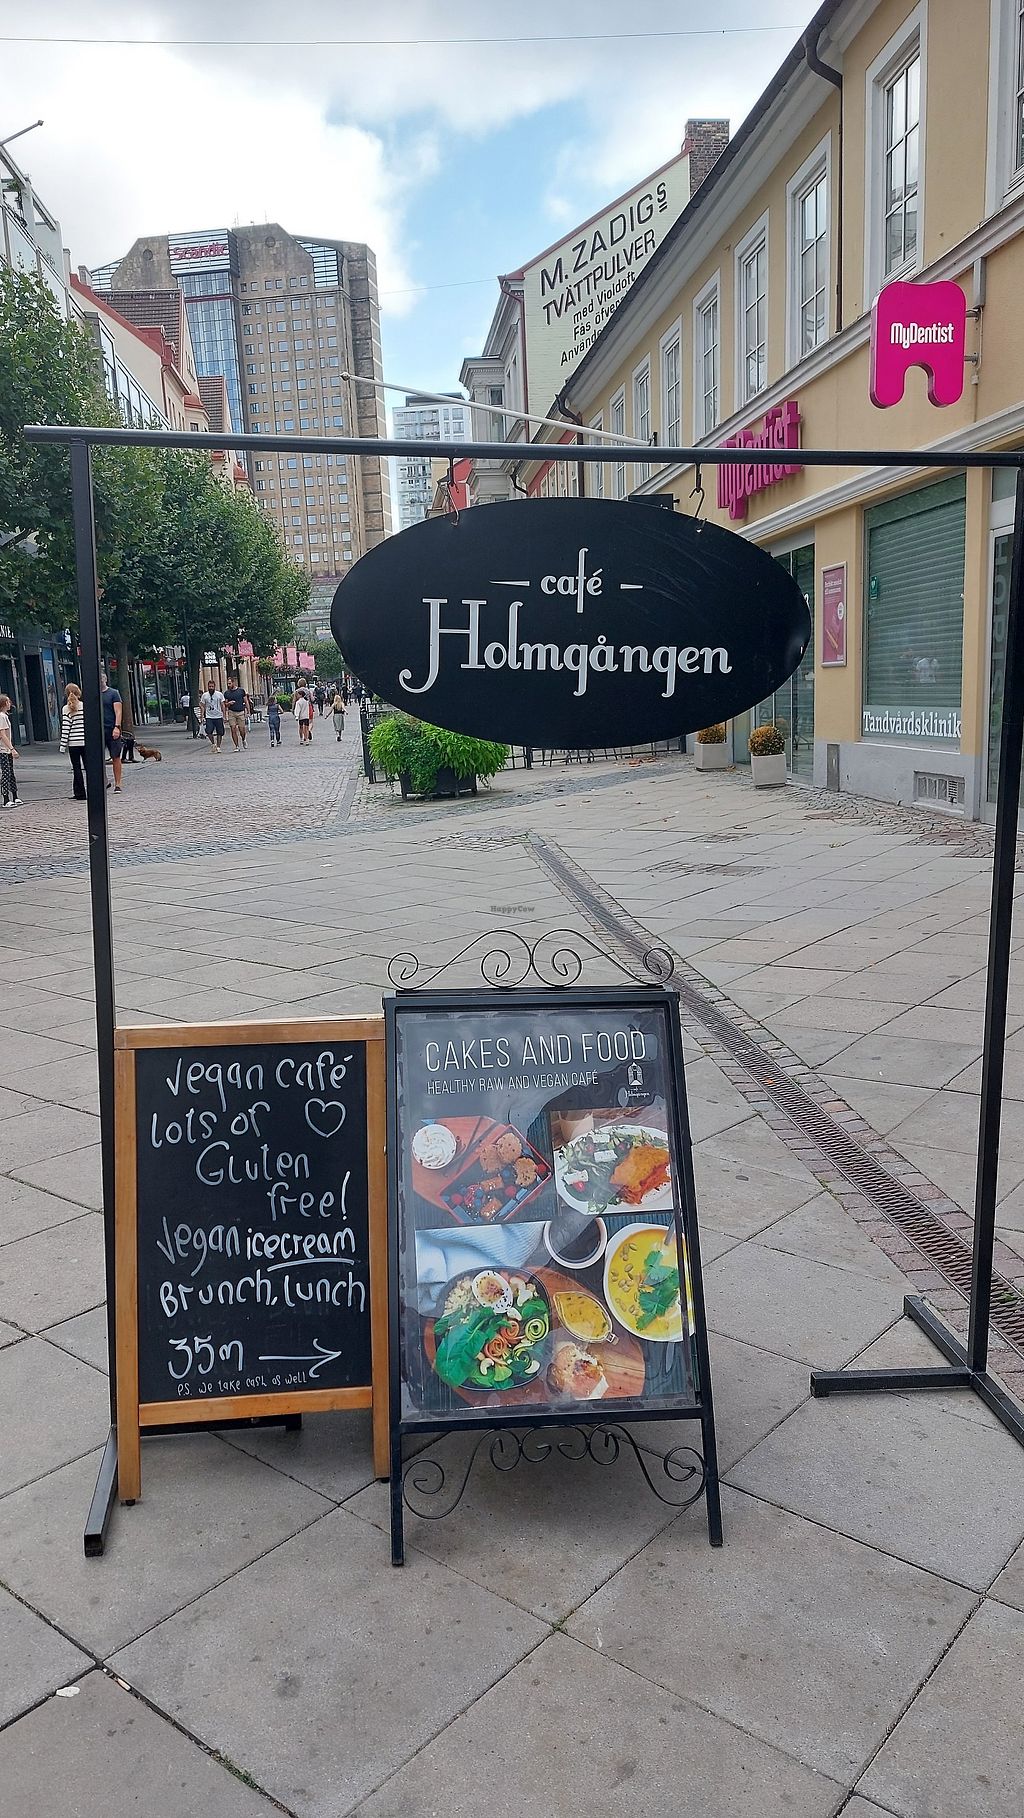 Scandic
M. ZADIGS
TVÄTTPULVER
med Violdoft
Fås öfver
Använd
MyDentist
MyDentist
café
Holmgången
Tandvårdsklinik
HappyCow
Vegan café
lots of
Gluten
free!
Vegan icecream
Brunch, lunch
35m →
P.S. we take cash as well
CAKES AND FOOD
HEALTHY RAW AND VEGAN CAFÉ
Holmgången